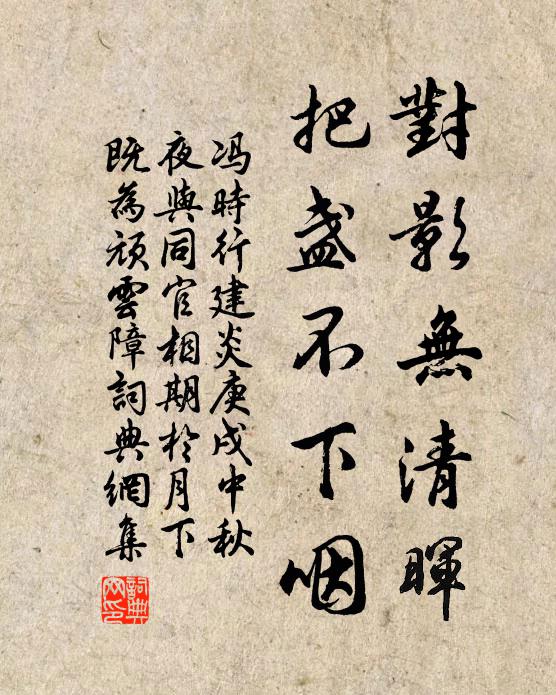 對影無清暉
把盞不下咽
冯時行建炎庚戌中秋
夜與同官相期於月下
既為頑雲障詞典網集
詞典网印